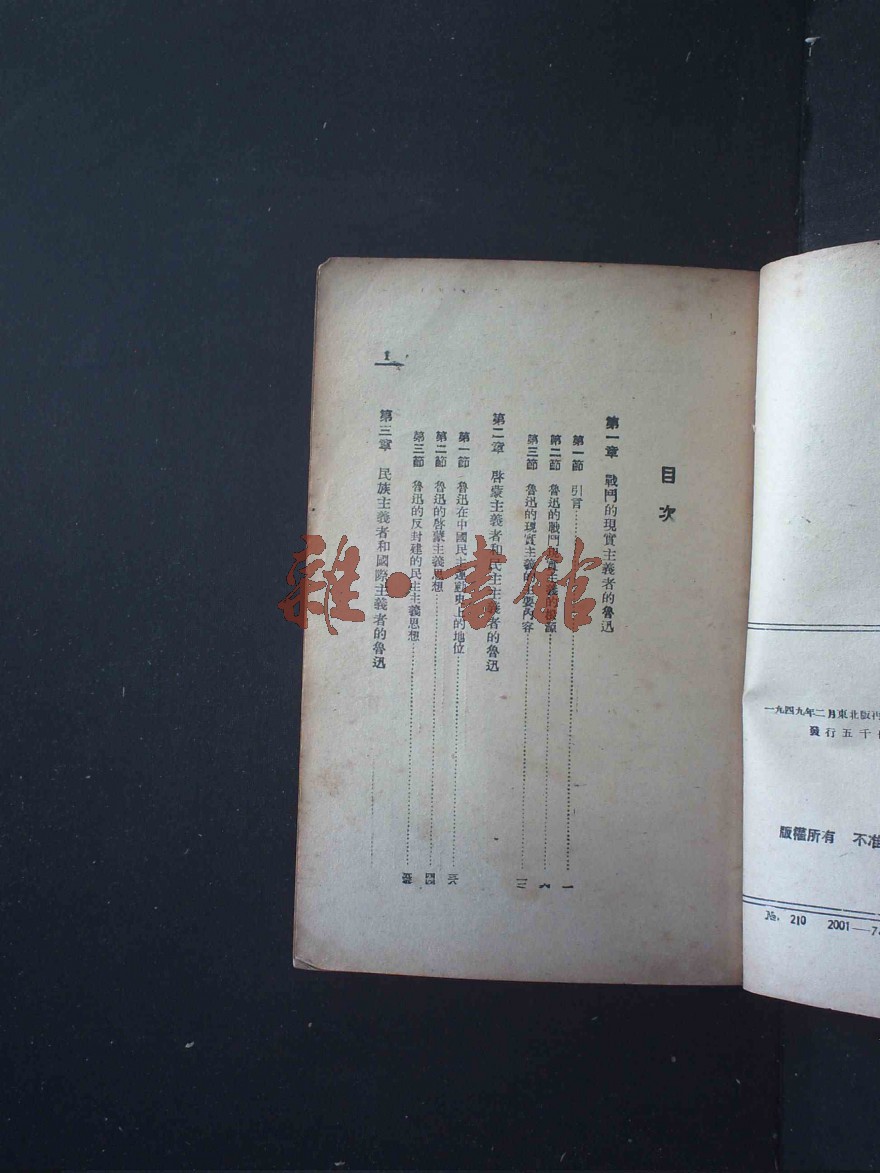 一九四九年二月東北版
發行五千
版權所有　不准
No. 210　2001—7
目次
第一章　戰鬥的現實主義者的魯迅
第一節　引言……一
第二節　魯迅的戰鬥現實主義的根源……六
第三節　魯迅的現實主義的主要內容……一三
第二章　啓蒙主義者和民主主義者的魯迅
第一節　魯迅在中國民主運動史上的地位……
第二節　魯迅的啓蒙主義思想……四四
第三節　魯迅的反封建的民主主義思想……
第三章　民族主義者和國際主義者的魯迅……
1
雜·書館